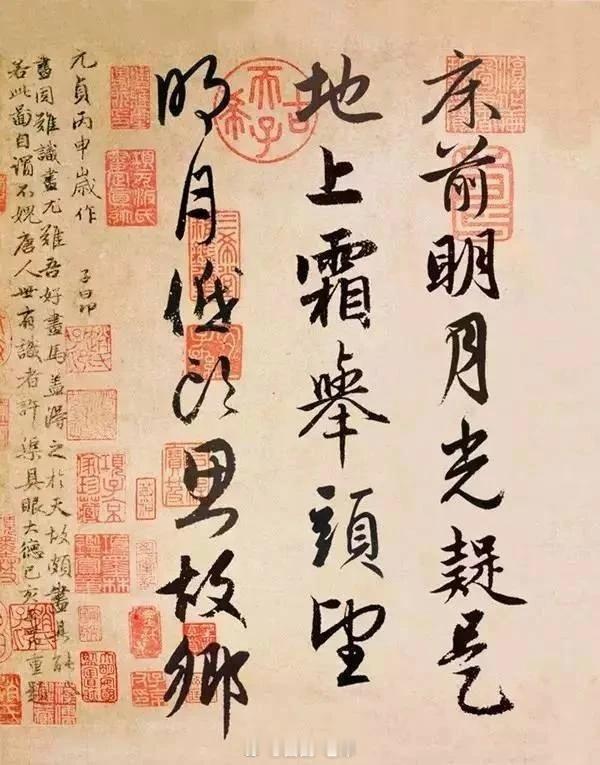 床前明月光疑是
地上霜舉頭望
明月低头思故鄉
元貞丙申歲作 子昂
畫固難識畫尤難吾好畫馬蓋得之於天故頗盡其能
若此圖自謂不愧唐人世有識者許渠具眼大德己亥子昂重題
古希天子
項子京家珍藏